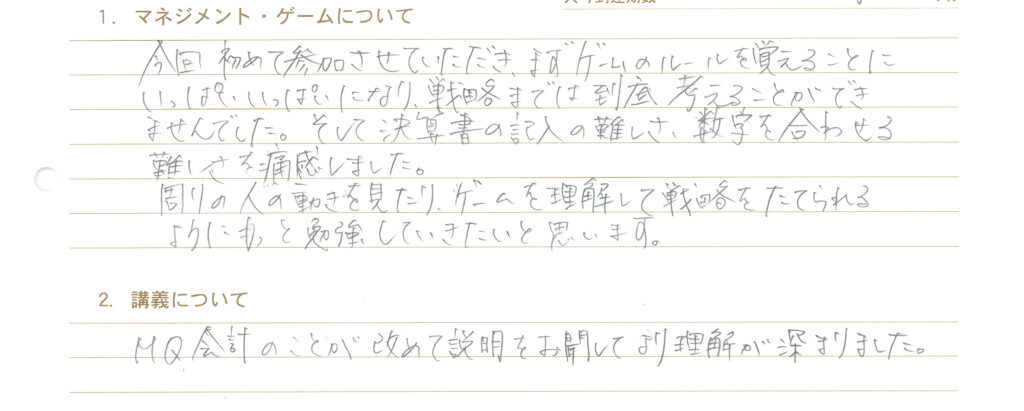 1. マネジメント・ゲームについて
今回 初めて参加させていただき、まずゲームのルールを覚えることに
いっぱいいっぱいになり、戦略までは到底 考えることができ
ませんでした。そして決算書の記入の難しさ、数字を合わせる
難しさを痛感しました。
周りの人の動きを見たり、ゲームを理解して戦略をたてられる
ようにもっと勉強していきたいと思います。
2. 講義について
MQ会計のことが改めて説明をお聞してより理解が深まりました。